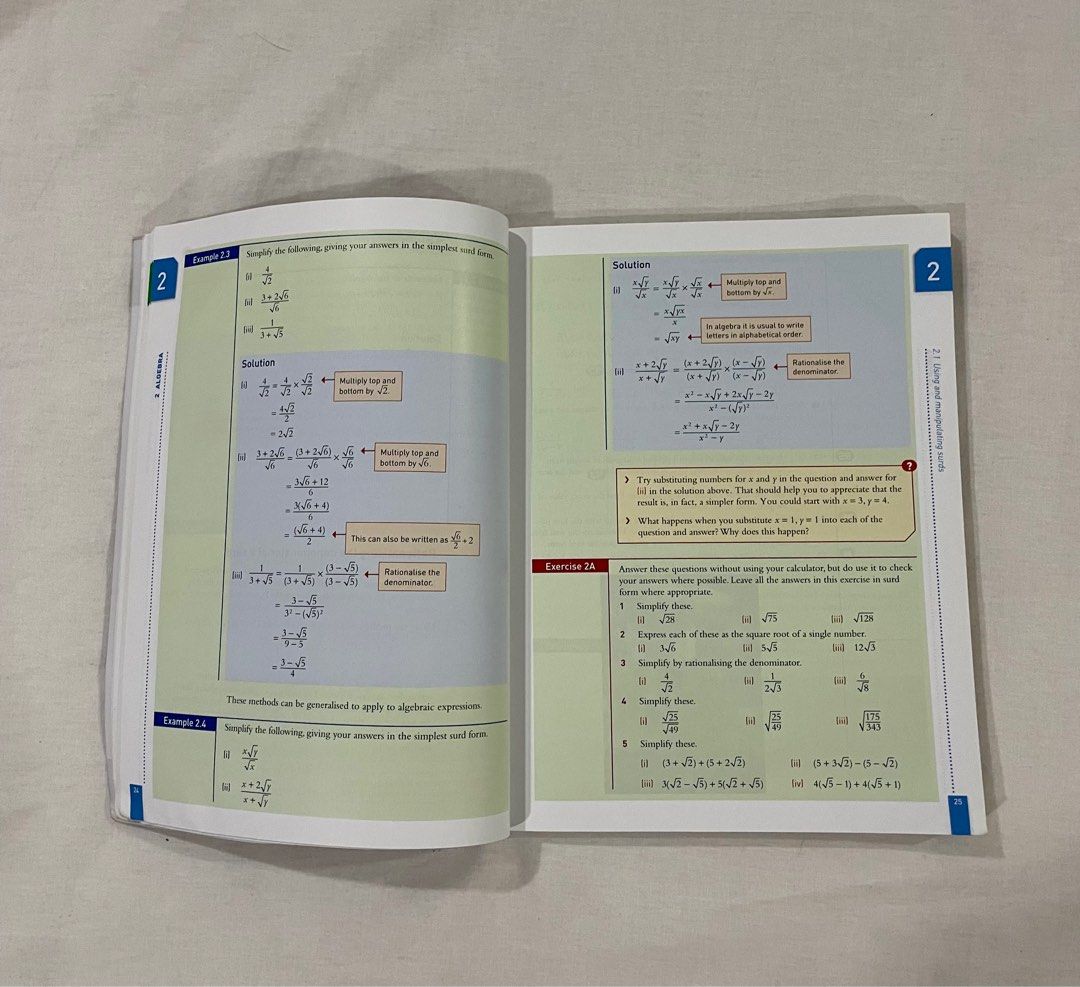 2
2 ALGEBRA
Example 2.3
Simplify the following, giving your answers in the simplest surd form.
(i) 4/√2
(ii) (3 + 2√6)/√6
(iii) 1/(3 + √5)
Solution
(i) 4/√2 = 4/√2 × √2/√2
Multiply top and
bottom by √2.
= 4√2/2
= 2√2
(ii) (3 + 2√6)/√6 = (3 + 2√6)/√6 × √6/√6
Multiply top and
bottom by √6.
= (3√6 + 12)/6
= 3(√6 + 4)/6
= (√6 + 4)/2
This can also be written as √6/2 + 2
(iii) 1/(3 + √5) = 1/(3 + √5) × (3 − √5)/(3 − √5)
Rationalise the
denominator.
= (3 − √5)/(3² − (√5)²)
= (3 − √5)/(9 − 5)
= (3 − √5)/4
These methods can be generalised to apply to algebraic expressions.
Example 2.4
Simplify the following, giving your answers in the simplest surd form.
(i) x√y/√x
(ii) (x + 2√y)/(x + √y)
24
2
2.1 Using and manipulating surds
Solution
(i) x√y/√x = x√y/√x × √x/√x
Multiply top and
bottom by √x.
= x√yx/x
= √xy
In algebra it is usual to write
letters in alphabetical order.
(ii) (x + 2√y)/(x + √y) = (x + 2√y)/(x + √y) × (x − √y)/(x − √y)
Rationalise the
denominator.
= (x² − x√y + 2x√y − 2y)/(x² − (√y)²)
= (x² + x√y − 2y)/(x² − y)
?
› Try substituting numbers for x and y in the question and answer for
(ii) in the solution above. That should help you to appreciate that the
result is, in fact, a simpler form. You could start with x = 3, y = 4.
› What happens when you substitute x = 1, y = 1 into each of the
question and answer? Why does this happen?
Exercise 2A
Answer these questions without using your calculator, but do use it to check
your answers where possible. Leave all the answers in this exercise in surd
form where appropriate.
1 Simplify these.
(i) √28 (ii) √75 (iii) √128
2 Express each of these as the square root of a single number.
(i) 3√6 (ii) 5√5 (iii) 12√3
3 Simplify by rationalising the denominator.
(i) 4/√2 (ii) 1/2√3 (iii) 6/√8
4 Simplify these.
(i) √25/√49 (ii) √(25/49) (iii) √(175/343)
5 Simplify these.
(i) (3 + √2) + (5 + 2√2) (ii) (5 + 3√2) − (5 − √2)
(iii) 3(√2 − √5) + 5(√2 + √5) (iv) 4(√5 − 1) + 4(√5 + 1)
25